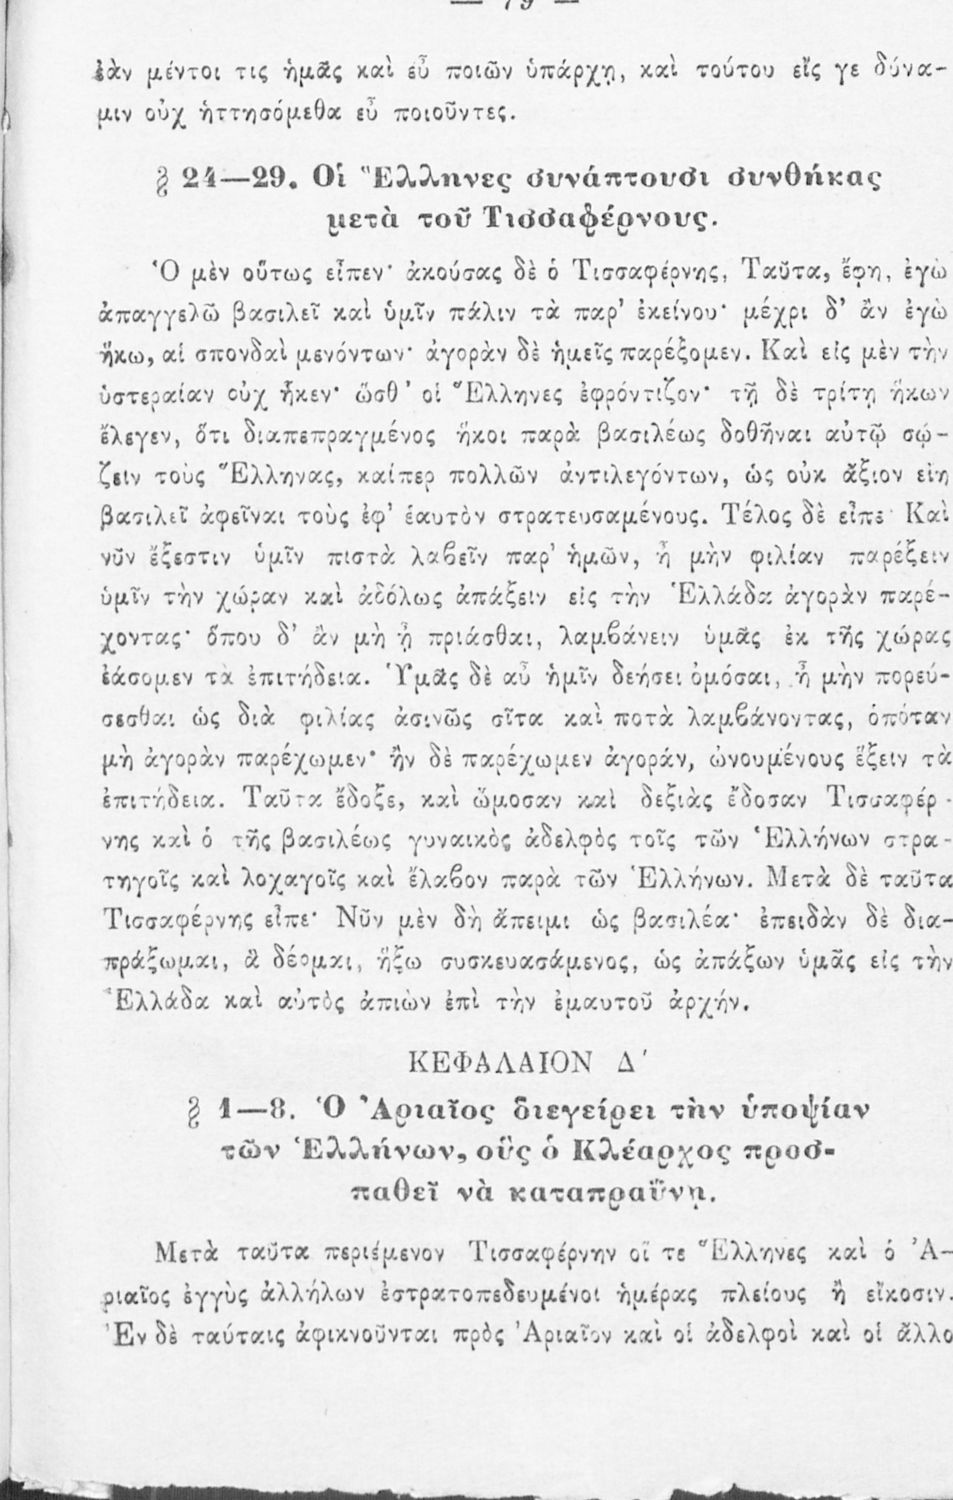 — 79 —
ἐὰν μέντοι τις ἡμᾶς καὶ εὖ ποιῶν ὑπάρχῃ, καὶ τούτου εἴς γε δύνα-
μιν οὐχ ἡττησόμεθα εὖ ποιοῦντες.
§ 24—29. Οἱ Ἕλληνες συνάπτουσι συνθήκας
μετὰ τοῦ Τισσαφέρνους.
Ὁ μὲν οὕτως εἶπεν· ἀκούσας δὲ ὁ Τισσαφέρνης, Ταῦτα, ἔφη, ἐγὼ
ἀπαγγελῶ βασιλεῖ καὶ ὑμῖν πάλιν τὰ παρ’ ἐκείνου· μέχρι δ’ ἂν ἐγὼ
ἥκω, αἱ σπονδαὶ μενόντων· ἀγορὰν δὲ ἡμεῖς παρέξομεν. Καὶ εἰς μὲν τὴν
ὑστεραίαν οὐχ ἧκεν· ὥσθ’ οἱ Ἕλληνες ἐφρόντιζον· τῇ δὲ τρίτῃ ἥκων
ἔλεγεν, ὅτι διαπεπραγμένος ἥκοι παρὰ βασιλέως δοθῆναι αὐτῷ σῴ-
ζειν τοὺς Ἕλληνας, καίπερ πολλῶν ἀντιλεγόντων, ὡς οὐκ ἄξιον εἴη
βασιλεῖ ἀφεῖναι τοὺς ἐφ’ ἑαυτὸν στρατευσαμένους. Τέλος δὲ εἶπε· Καὶ
νῦν ἔξεστιν ὑμῖν πιστὰ λαβεῖν παρ’ ἡμῶν, ἦ μὴν φιλίαν παρέξειν
ὑμῖν τὴν χώραν καὶ ἀδόλως ἀπάξειν εἰς τὴν Ἑλλάδα ἀγορὰν παρέ-
χοντας· ὅπου δ’ ἂν μὴ ᾖ πριάσθαι, λαμβάνειν ὑμᾶς ἐκ τῆς χώρας
ἐάσομεν τὰ ἐπιτήδεια. Ὑμᾶς δὲ αὖ ἡμῖν δεήσει ὀμόσαι, ἦ μὴν πορεύ-
σεσθαι ὡς διὰ φιλίας ἀσινῶς σῖτα καὶ ποτὰ λαμβάνοντας, ὁπόταν
μὴ ἀγορὰν παρέχωμεν· ἢν δὲ παρέχωμεν ἀγοράν, ὠνουμένους ἕξειν τὰ
ἐπιτήδεια. Ταῦτα ἔδοξε, καὶ ὤμοσαν καὶ δεξιὰς ἔδοσαν Τισσαφέρ-
νης καὶ ὁ τῆς βασιλέως γυναικὸς ἀδελφὸς τοῖς τῶν Ἑλλήνων στρα-
τηγοῖς καὶ λοχαγοῖς καὶ ἔλαβον παρὰ τῶν Ἑλλήνων. Μετὰ δὲ ταῦτα
Τισσαφέρνης εἶπε· Νῦν μὲν δὴ ἄπειμι ὡς βασιλέα· ἐπειδὰν δὲ δια-
πράξωμαι, ἃ δέομαι, ἥξω συσκευασάμενος, ὡς ἀπάξων ὑμᾶς εἰς τὴν
Ἑλλάδα καὶ αὐτὸς ἀπιὼν ἐπὶ τὴν ἐμαυτοῦ ἀρχήν.
ΚΕΦΑΛΑΙΟΝ Δ′
§ 1—8. Ὁ Ἀριαῖος διεγείρει τὴν ὑποψίαν
τῶν Ἑλλήνων, οὓς ὁ Κλέαρχος προσ-
παθεῖ νὰ καταπραΰνῃ.
Μετὰ ταῦτα περιέμενον Τισσαφέρνην οἵ τε Ἕλληνες καὶ ὁ Ἀ-
ριαῖος ἐγγὺς ἀλλήλων ἐστρατοπεδευμένοι ἡμέρας πλείους ἢ εἴκοσιν.
Ἐν δὲ ταύταις ἀφικνοῦνται πρὸς Ἀριαῖον καὶ οἱ ἀδελφοὶ καὶ οἱ ἄλλο